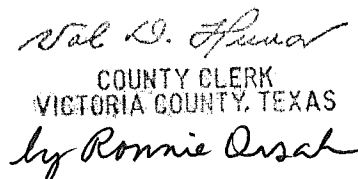 Val D. Huvar
COUNTY CLERK
VICTORIA COUNTY, TEXAS
by Ronnie Orsak